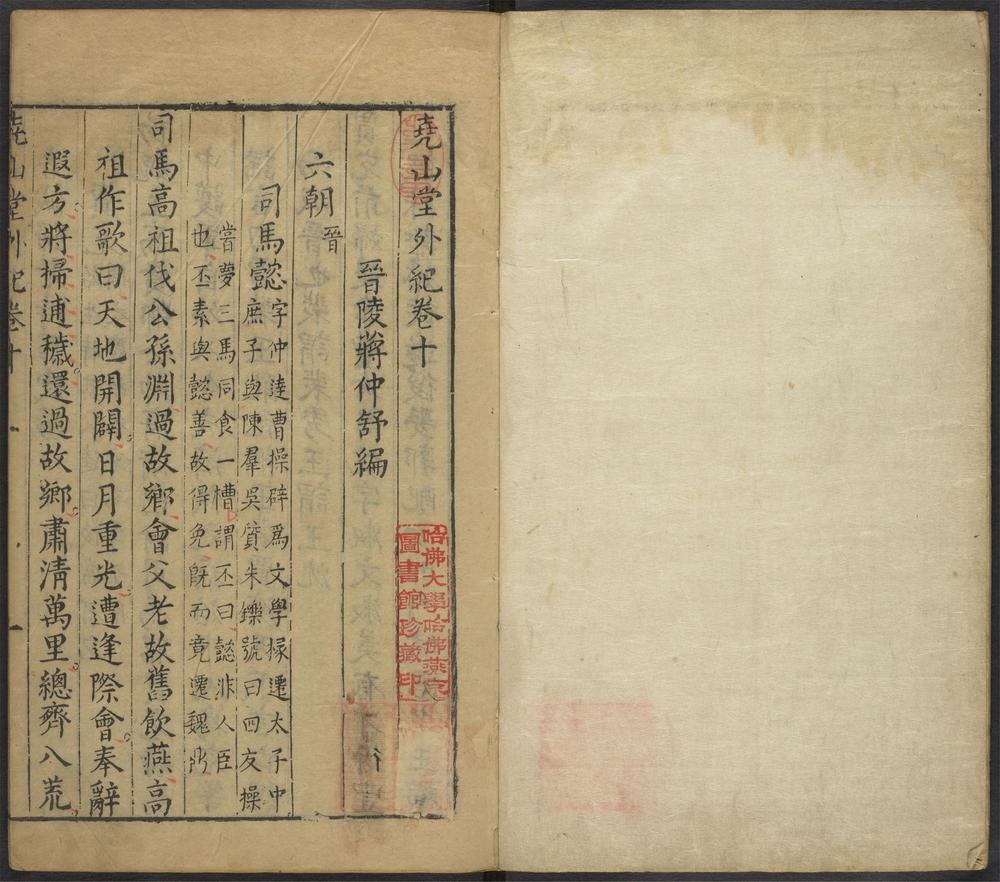 堯山堂外紀卷十
晉陵蔣仲舒編
六朝晉
司馬懿字仲達曹操辟爲文學掾遷太子中
庶子與陳羣吳質朱鑠號曰四友操
嘗夢三馬同食一槽謂丕曰懿非人臣
也丕素與懿善故得免旣而竟遷魏鼎
司馬高祖伐公孫淵過故鄉會父老故舊飲燕高
祖作歌曰天地開闢日月重光遭逢際會奉辭
遐方將掃逋穢還過故鄉肅淸萬里總齊八荒
堯山堂外紀卷十
哈佛大學哈佛燕京
圖書館珍藏印